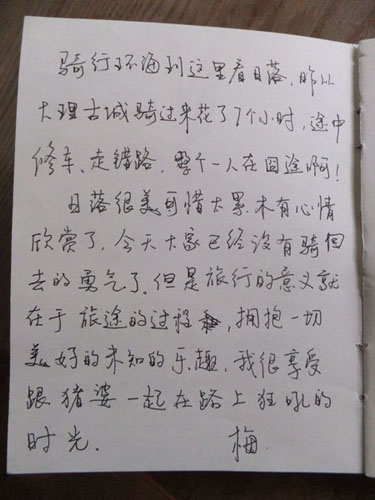 骑行环海到这里看日落,昨从
大理古城骑过来花了7个小时,途中
修车、走错路,整个一人在囧途啊!
日落很美,可惜太累,木有心情
欣赏了,今天大家已经没有骑回
去的勇气了.但是旅行的意义就
在于旅途的过程,拥抱一切
美好的未知的乐趣,我很享受
跟猪婆一起在路上狂吼的
时光.
梅